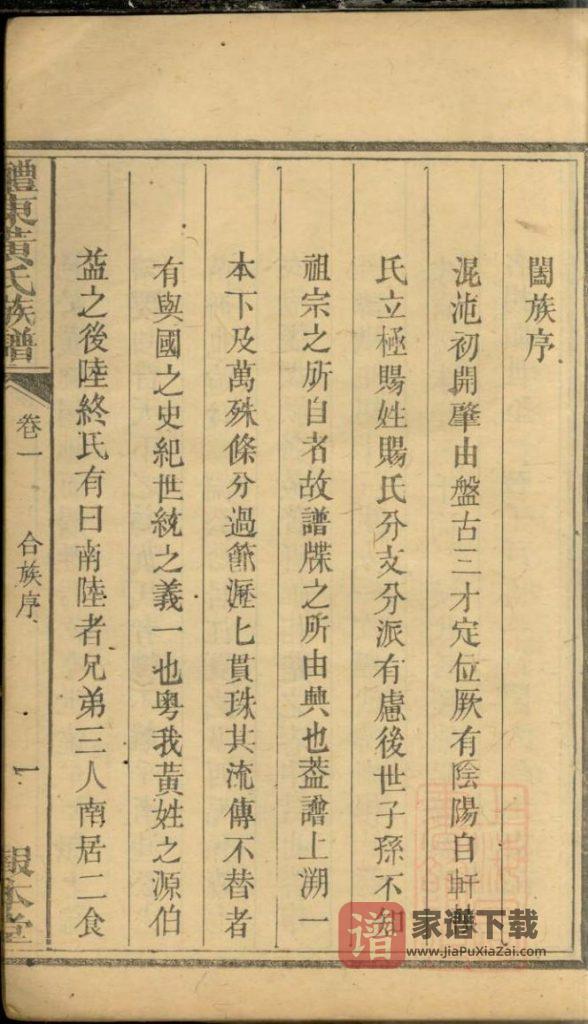 闔族序
混沌初開肇由盤古三才定位厥有陰陽自軒轅
氏立極賜姓賜氏分支分派有慮後世子孫不知
祖宗之所自者故譜牒之所由興也葢譜上溯一
本下及萬殊條分過節瀝匕貫珠其流傳不替者
有與國之史紀世統之義一也粤我黃姓之源伯
益之後陸終氏有曰南陸者兄弟三人南居二食
醴東黃氏族譜
卷一
合族序
一
報本堂
譜
家谱下载
www.JiaPuXiaZai.com